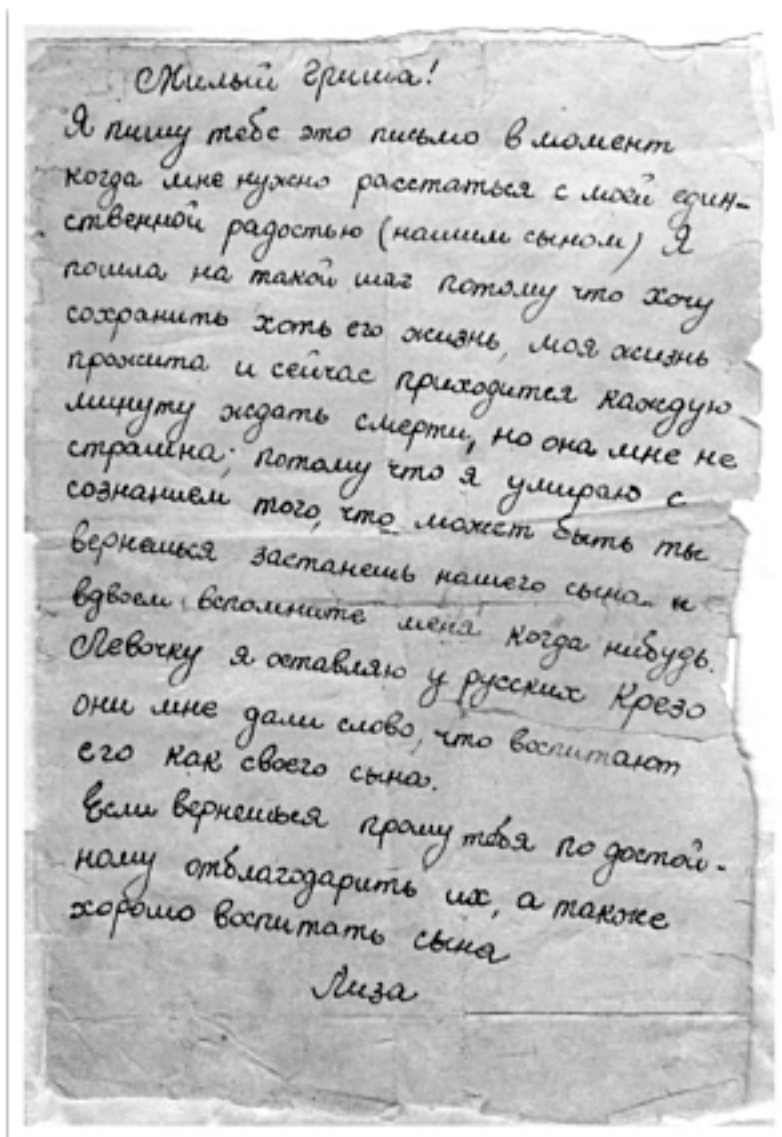 Милый Гриша!
Я пишу тебе это письмо в момент
когда мне нужно расстаться с моей един-
ственной радостью (нашим сыном) Я
пошла на такой шаг потому что хочу
сохранить хоть его жизнь, моя жизнь
прожита и сейчас приходится каждую
минуту ждать смерти, но она мне не
страшна; потому что я умираю с
сознанием того, что может быть ты
вернешься застанешь нашего сына и
вдвоем вспомните меня когда нибудь.
Левочку я оставляю у русских Крезо
они мне дали слово, что воспитают
его как своего сына.
Если вернешься прошу тебя по достой-
ному отблагодарить их, а также
хорошо воспитать сына
Лиза